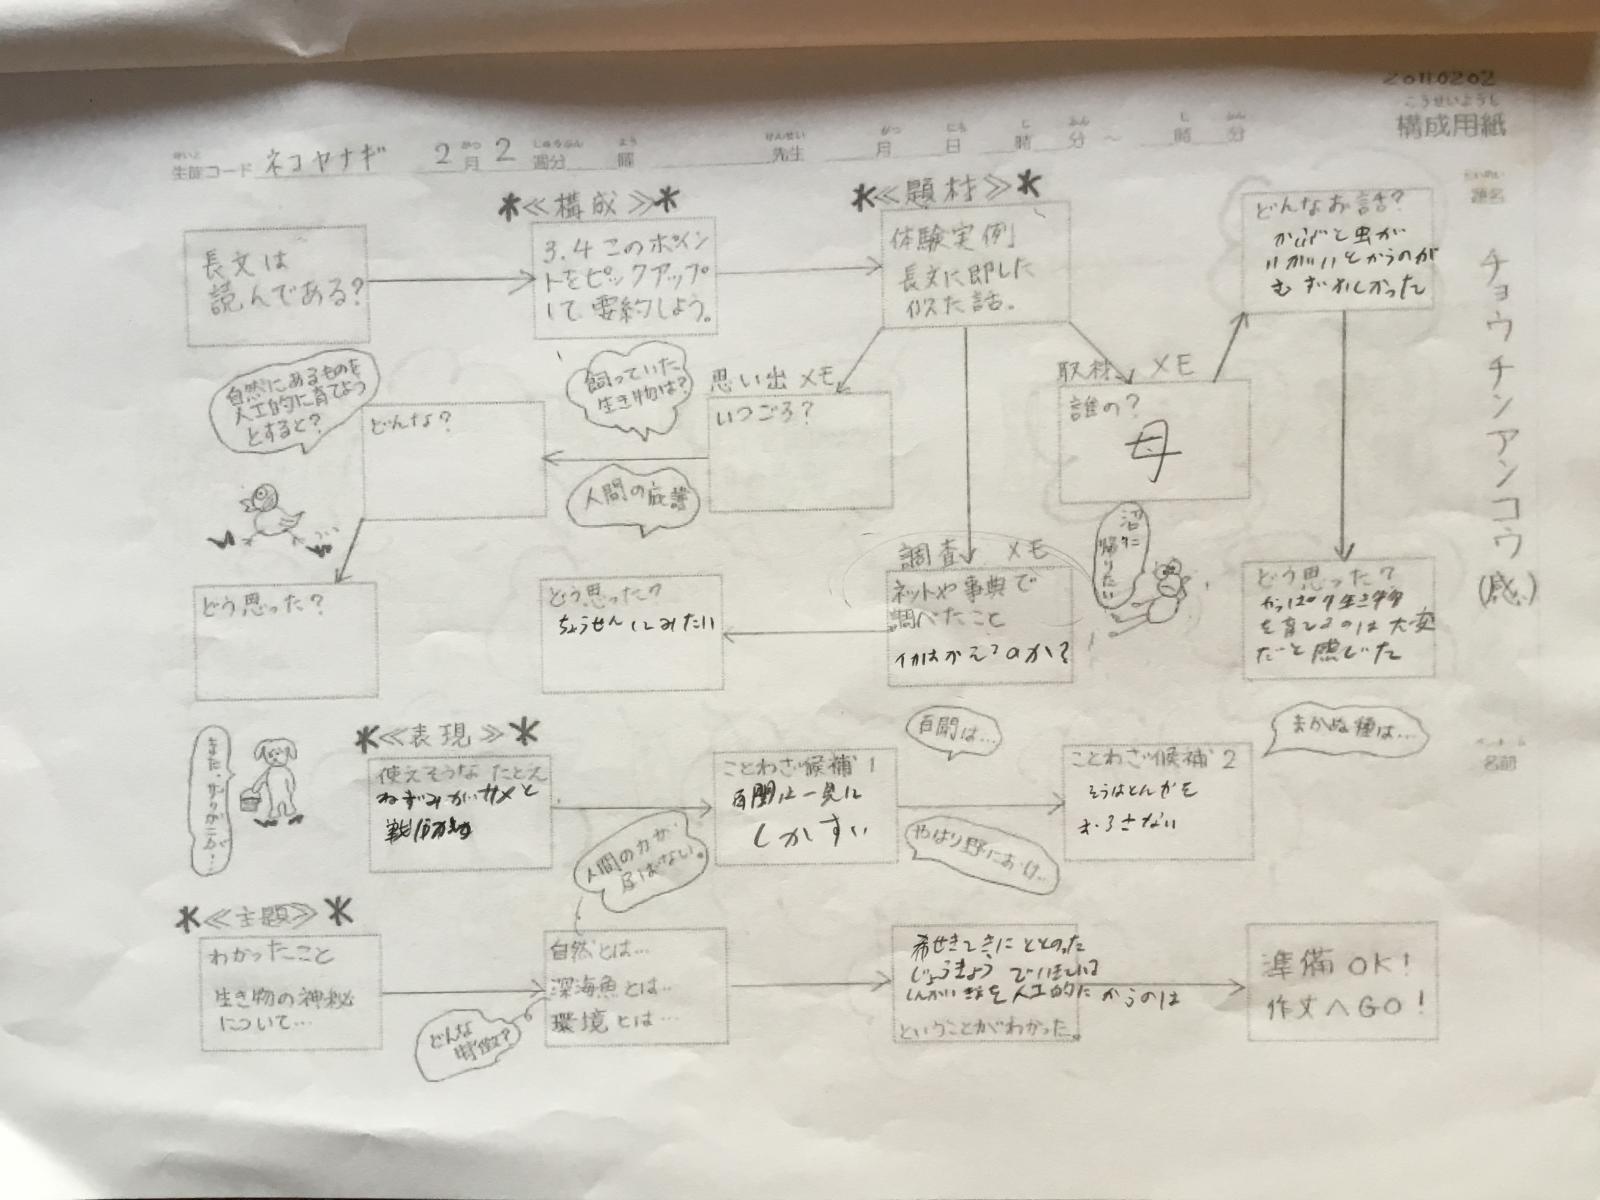 2011.0202
こうせいようし
構成用紙
せいと
生徒コード ネコヤナギ 2月 2週分 曜 先生 月 日 時 分～ 時 分
だいめい
題名
チョウチンアンコウ(感)
名前
*≪構成≫*
*≪題材≫*
長文は
読んである?
3.4このポイン
トをピックアップ
して要約しよう。
体験実例」
長文に即した
似た話。
どんなお話?
かぶと虫が
いがいとかうのが
むずかしかった
自然にあるものを
人工的に育てよう
とすると?
飼っていた
生き物は?
思い出メモ
いつごろ?
取材メモ
誰の?
母
どんな?
人間の庇護
沼に
帰りたい
調査メモ
ネットや事典で
調べたこと
イカはかえるのか?
どう思った?
ちょうせんしてみたい
どう思った?
どう思った?
を育てるのは大変
だと感じた
*≪表現≫*
また、ザリガニが…
使えそうなたとえ
ねずみがサメと
ことわざ候補1
百聞は一見に
しかずい
百聞は…
ことわざ候補2
まかぬ種は…
人間の力が
及ばない。
やはり野におけ…
*≪主題≫*
わかったこと
生き物の神秘
について…
どんな
特徴?
自然とは…
深海魚とは…
環境とは…
じょうきょう
人工的にかうのは
ということがわかった。
準備OK!
作文へGO!